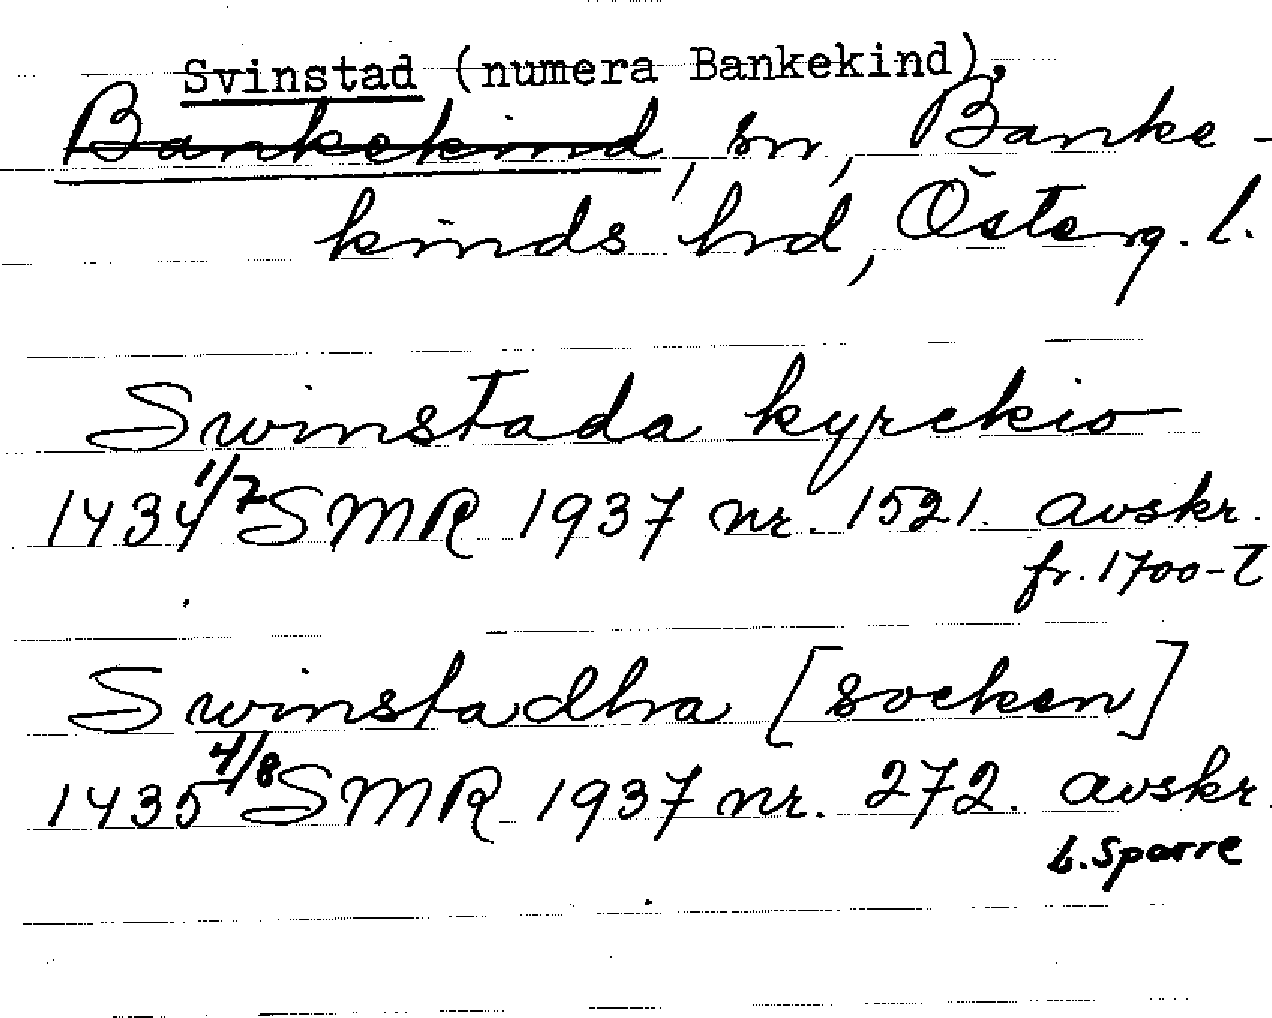 Svinstad (numera Bankekind),
Bankekind, sn, Banke-
kinds hrd, Österg. l.
Swinstada kyrekio
1434 1/7 SMR 1937 nr. 1521. avskr.
fr. 1700-t
Swinstadha [socken]
1435 4/8 SMR 1937 nr. 272. avskr.
b. Sparre